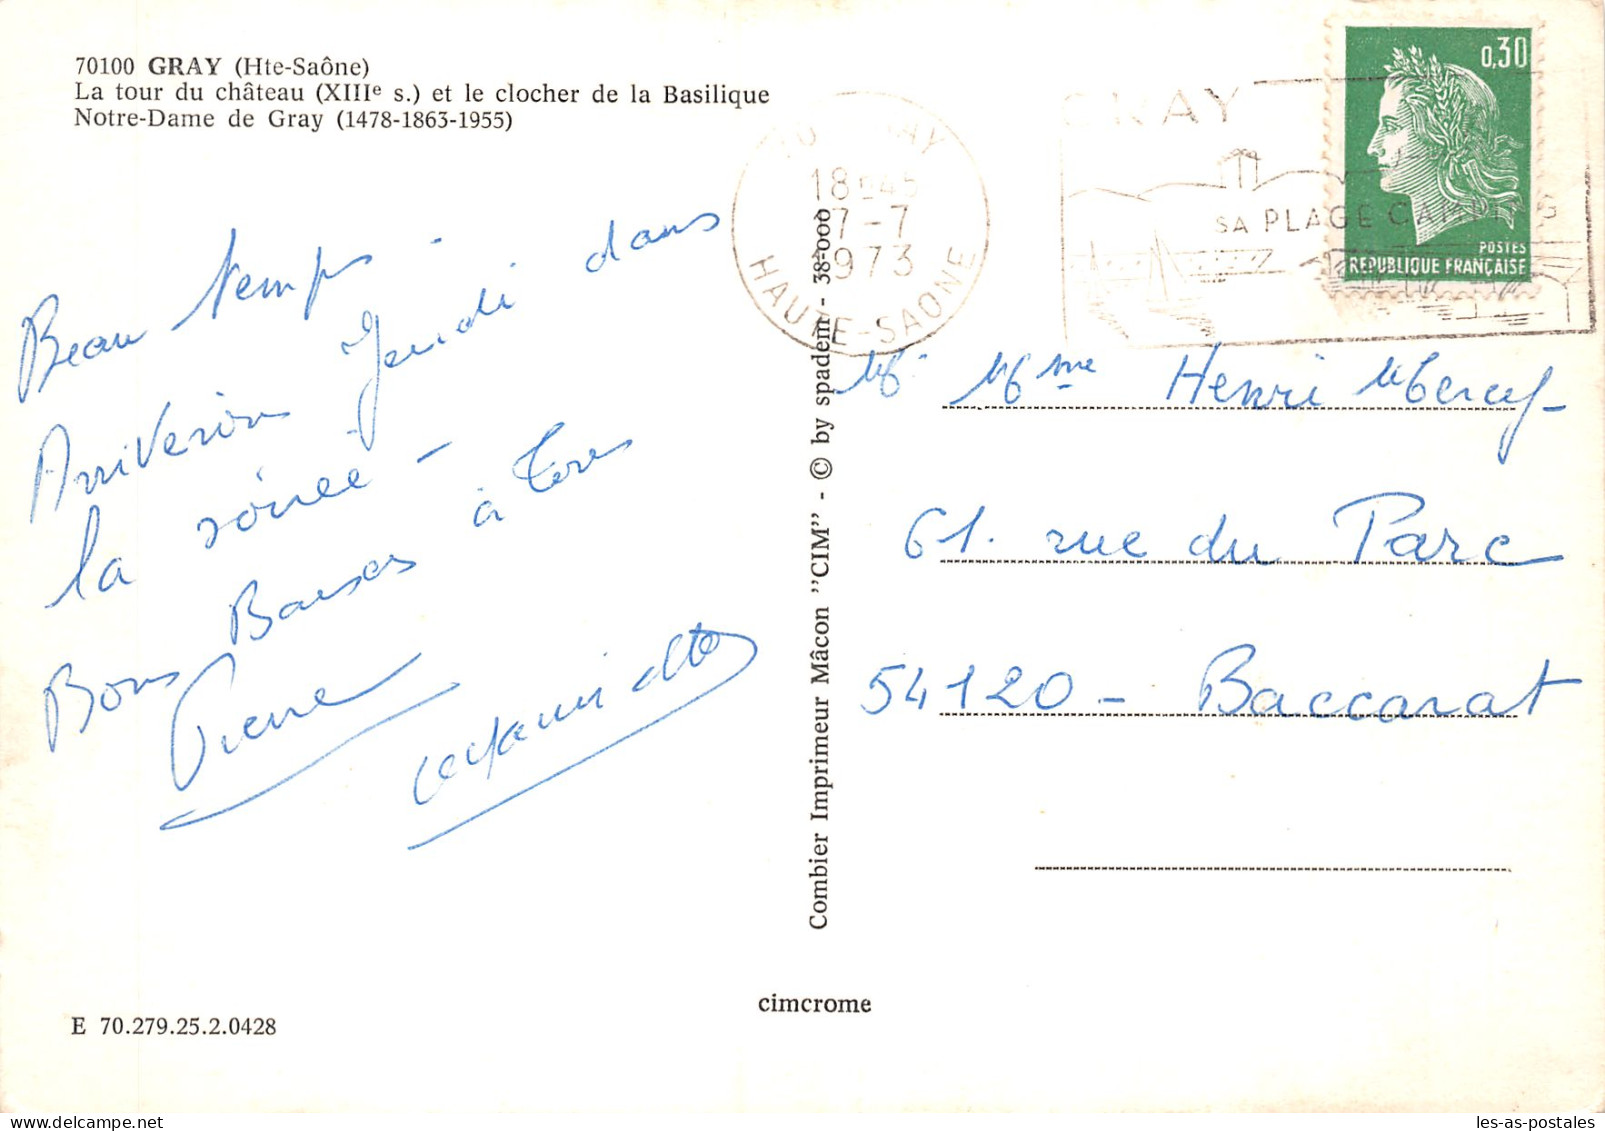 70100 GRAY (Hte-Saône)
La tour du château (XIIIe s.) et le clocher de la Basilique
Notre-Dame de Gray (1478-1863-1955)
Beau temps -
Arriverons Jeudi dans
la soirée -
Bons Baisers à tous
Pierre
GRAY
18H45
7-7
1973
HAUTE-SAONE
GRAY
SA PLAGE CAMPINGS
0,30
POSTES
REPUBLIQUE FRANÇAISE
M. Mme Henri Mercy
61. rue du Parc
54120 - Baccarat
Combier Imprimeur Mâcon "CIM" - © by spadem - 38-000
cimcrome
E 70.279.25.2.0428
les-as-postales